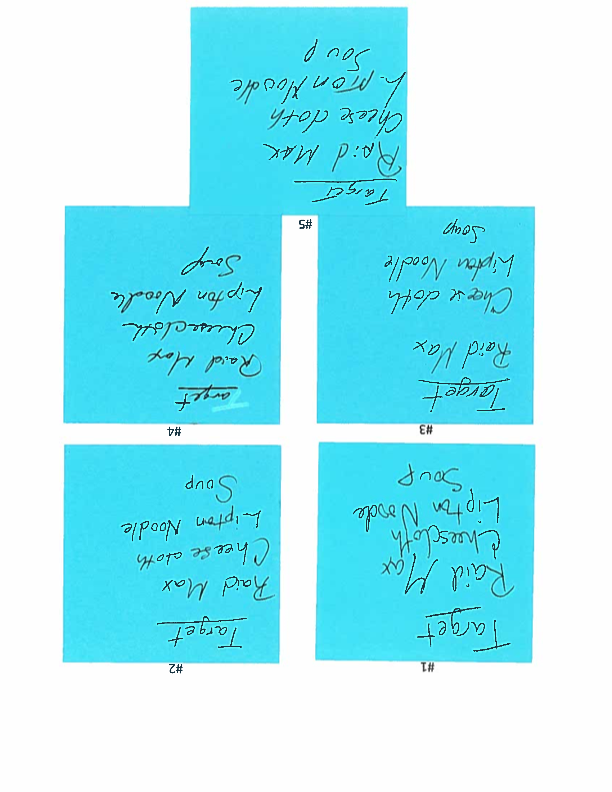 #1
Target
Raid Max
Cheescloth
Lipton Noodle
Soup
#2
Target
Raid Max
Cheese cloth
Lipton Noodle
Soup
#3
Target
Raid Max
Cheese cloth
Lipton Noodle
Soup
#4
Target
Raid Max
Cheesecloth
Lipton Noodle
Soup
#5
Target
Raid Max
Cheese cloth
Lipton Noodle
Soup